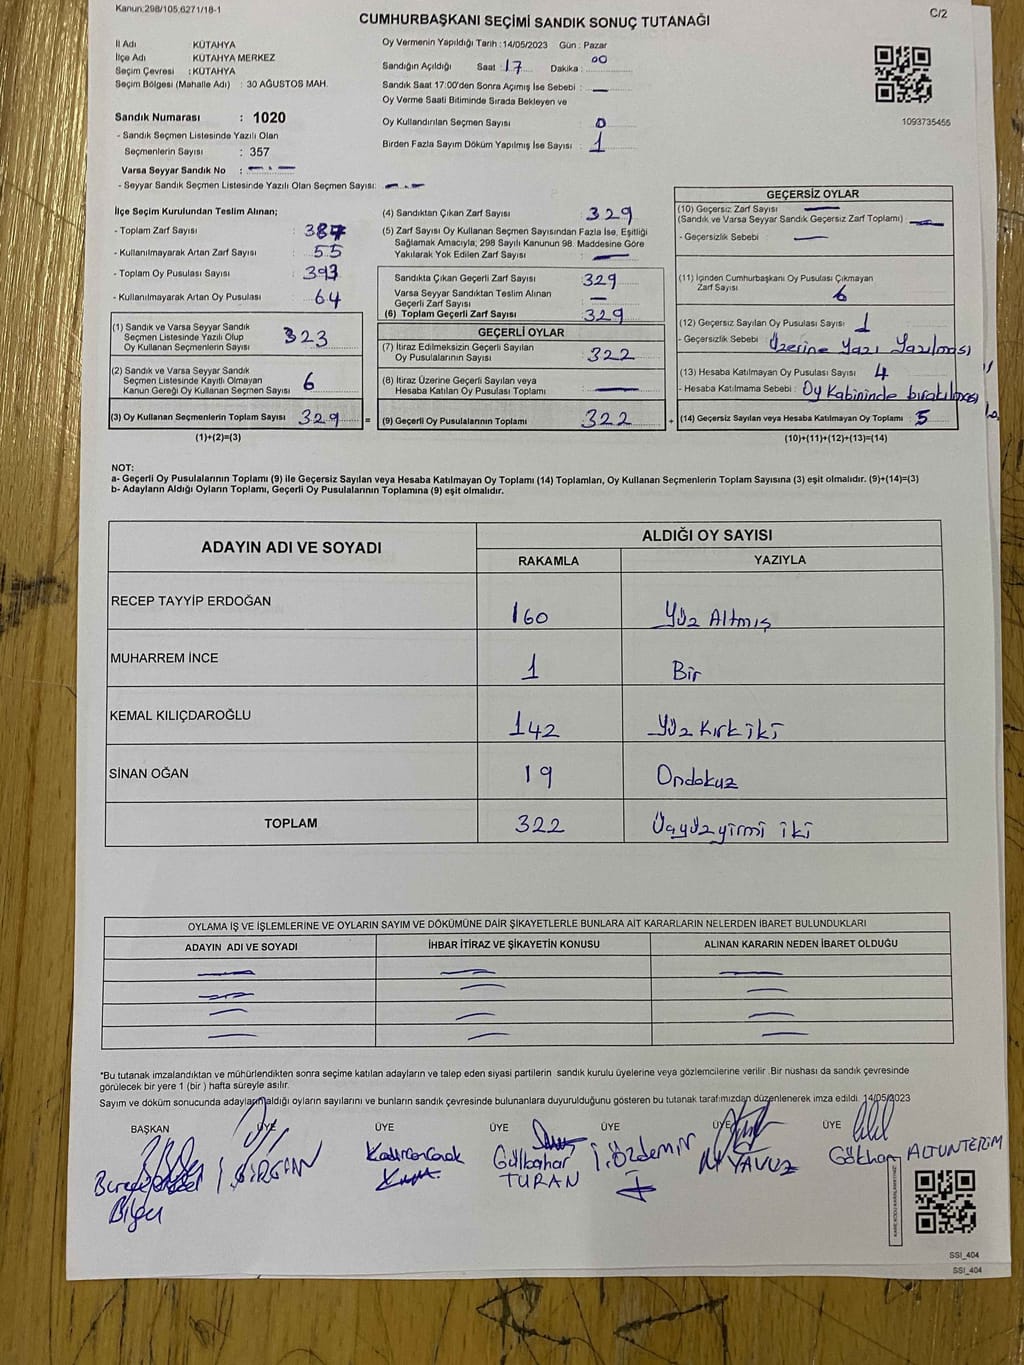 Kanun:298/105,6271/18-1
CUMHURBAŞKANI SEÇİMİ SANDIK SONUÇ TUTANAĞI
C/2
İl Adı KÜTAHYA
İlçe Adı KÜTAHYA MERKEZ
Seçim Çevresi : KÜTAHYA
Seçim Bölgesi (Mahalle Adı) : 30 AĞUSTOS MAH.
Sandık Numarası : 1020
- Sandık Seçmen Listesinde Yazılı Olan
Seçmenlerin Sayısı : 357
Varsa Seyyar Sandık No : —.—
- Seyyar Sandık Seçmen Listesinde Yazılı Olan Seçmen Sayısı: —.—
Oy Vermenin Yapıldığı Tarih :14/05/2023 Gün : Pazar
Sandığın Açıldığı Saat : 17 Dakika : 00
Sandık Saat 17:00'den Sonra Açımış İse Sebebi : —
Oy Verme Saati Bitiminde Sırada Bekleyen ve
Oy Kullandırılan Seçmen Sayısı : 0
Birden Fazla Sayım Döküm Yapılmış İse Sayısı : 1
1093735455
İlçe Seçim Kurulundan Teslim Alınan;
- Toplam Zarf Sayısı : 387
- Kullanılmayarak Artan Zarf Sayısı : 55
- Toplam Oy Pusulası Sayısı : 393
- Kullanılmayarak Artan Oy Pusulası : 64
(1) Sandık ve Varsa Seyyar Sandık
Seçmen Listesinde Yazılı Olup
Oy Kullanan Seçmenlerin Sayısı : 323
(2) Sandık ve Varsa Seyyar Sandık
Seçmen Listesinde Kayıtlı Olmayan
Kanun Gereği Oy Kullanan Seçmen Sayısı : 6
(3) Oy Kullanan Seçmenlerin Toplam Sayısı : 329 =
(1)+(2)=(3)
(4) Sandıktan Çıkan Zarf Sayısı : 329
(5) Zarf Sayısı Oy Kullanan Seçmen Sayısından Fazla İse, Eşitliği
Sağlamak Amacıyla; 298 Sayılı Kanunun 98. Maddesine Göre
Yakılarak Yok Edilen Zarf Sayısı : —
Sandıkta Çıkan Geçerli Zarf Sayısı : 329
Varsa Seyyar Sandıktan Teslim Alınan
Geçerli Zarf Sayısı : —
(6) Toplam Geçerli Zarf Sayısı : 329
GEÇERLİ OYLAR
(7) İtiraz Edilmeksizin Geçerli Sayılan
Oy Pusulalarının Sayısı : 322
(8) İtiraz Üzerine Geçerli Sayılan veya
Hesaba Katılan Oy Pusulası Toplamı : —
(9) Geçerli Oy Pusulalarının Toplamı : 322 +
GEÇERSİZ OYLAR
(10) Geçersiz Zarf Sayısı : —
(Sandık ve Varsa Seyyar Sandık Geçersiz Zarf Toplamı) —
- Geçersizlik Sebebi : —
(11) İçinden Cumhurbaşkanı Oy Pusulası Çıkmayan
Zarf Sayısı : 6
(12) Geçersiz Sayılan Oy Pusulası Sayısı : 1
- Geçersizlik Sebebi : Üzerine Yazı Yazılması
(13) Hesaba Katılmayan Oy Pusulası Sayısı : 4
- Hesaba Katılmama Sebebi : Oy Kabininde bırakılması
(14) Geçersiz Sayılan veya Hesaba Katılmayan Oy Toplamı : 5
(10)+(11)+(12)+(13)=(14)
NOT:
a- Geçerli Oy Pusulalarının Toplamı (9) ile Geçersiz Sayılan veya Hesaba Katılmayan Oy Toplamı (14) Toplamları, Oy Kullanan Seçmenlerin Toplam Sayısına (3) eşit olmalıdır. (9)+(14)=(3)
b- Adayların Aldığı Oyların Toplamı, Geçerli Oy Pusulalarının Toplamına (9) eşit olmalıdır.
ADAYIN ADI VE SOYADI
ALDIĞI OY SAYISI
RAKAMLA YAZIYLA
RECEP TAYYİP ERDOĞAN 160 Yüz Altmış
MUHARREM İNCE 1 Bir
KEMAL KILIÇDAROĞLU 142 Yüz Kırk iki
SİNAN OĞAN 19 Ondokuz
TOPLAM 322 Üçyüzyirmi iki
OYLAMA İŞ VE İŞLEMLERİNE VE OYLARIN SAYIM VE DÖKÜMÜNE DAİR ŞİKAYETLERLE BUNLARA AİT KARARLARIN NELERDEN İBARET BULUNDUKLARI
ADAYIN ADI VE SOYADI İHBAR İTİRAZ VE ŞİKAYETİN KONUSU ALINAN KARARIN NEDEN İBARET OLDUĞU
*Bu tutanak imzalandıktan ve mühürlendikten sonra seçime katılan adayların ve talep eden siyasi partilerin sandık kurulu üyelerine veya gözlemcilerine verilir .Bir nüshası da sandık çevresinde
görülecek bir yere 1 (bir ) hafta süreyle asılır.
Sayım ve döküm sonucunda adayların aldığı oyların sayılarını ve bunların sandık çevresinde bulunanlara duyurulduğunu gösteren bu tutanak tarafımızdan düzenlenerek imza edildi. 14/05/2023
BAŞKAN ÜYE ÜYE ÜYE ÜYE ÜYE ÜYE
Bilgi
Gülbahar TURAN
İ.Özdemir
YAVUZ
Gökhan ALTUNTERİM
SSI_404
SSI_404